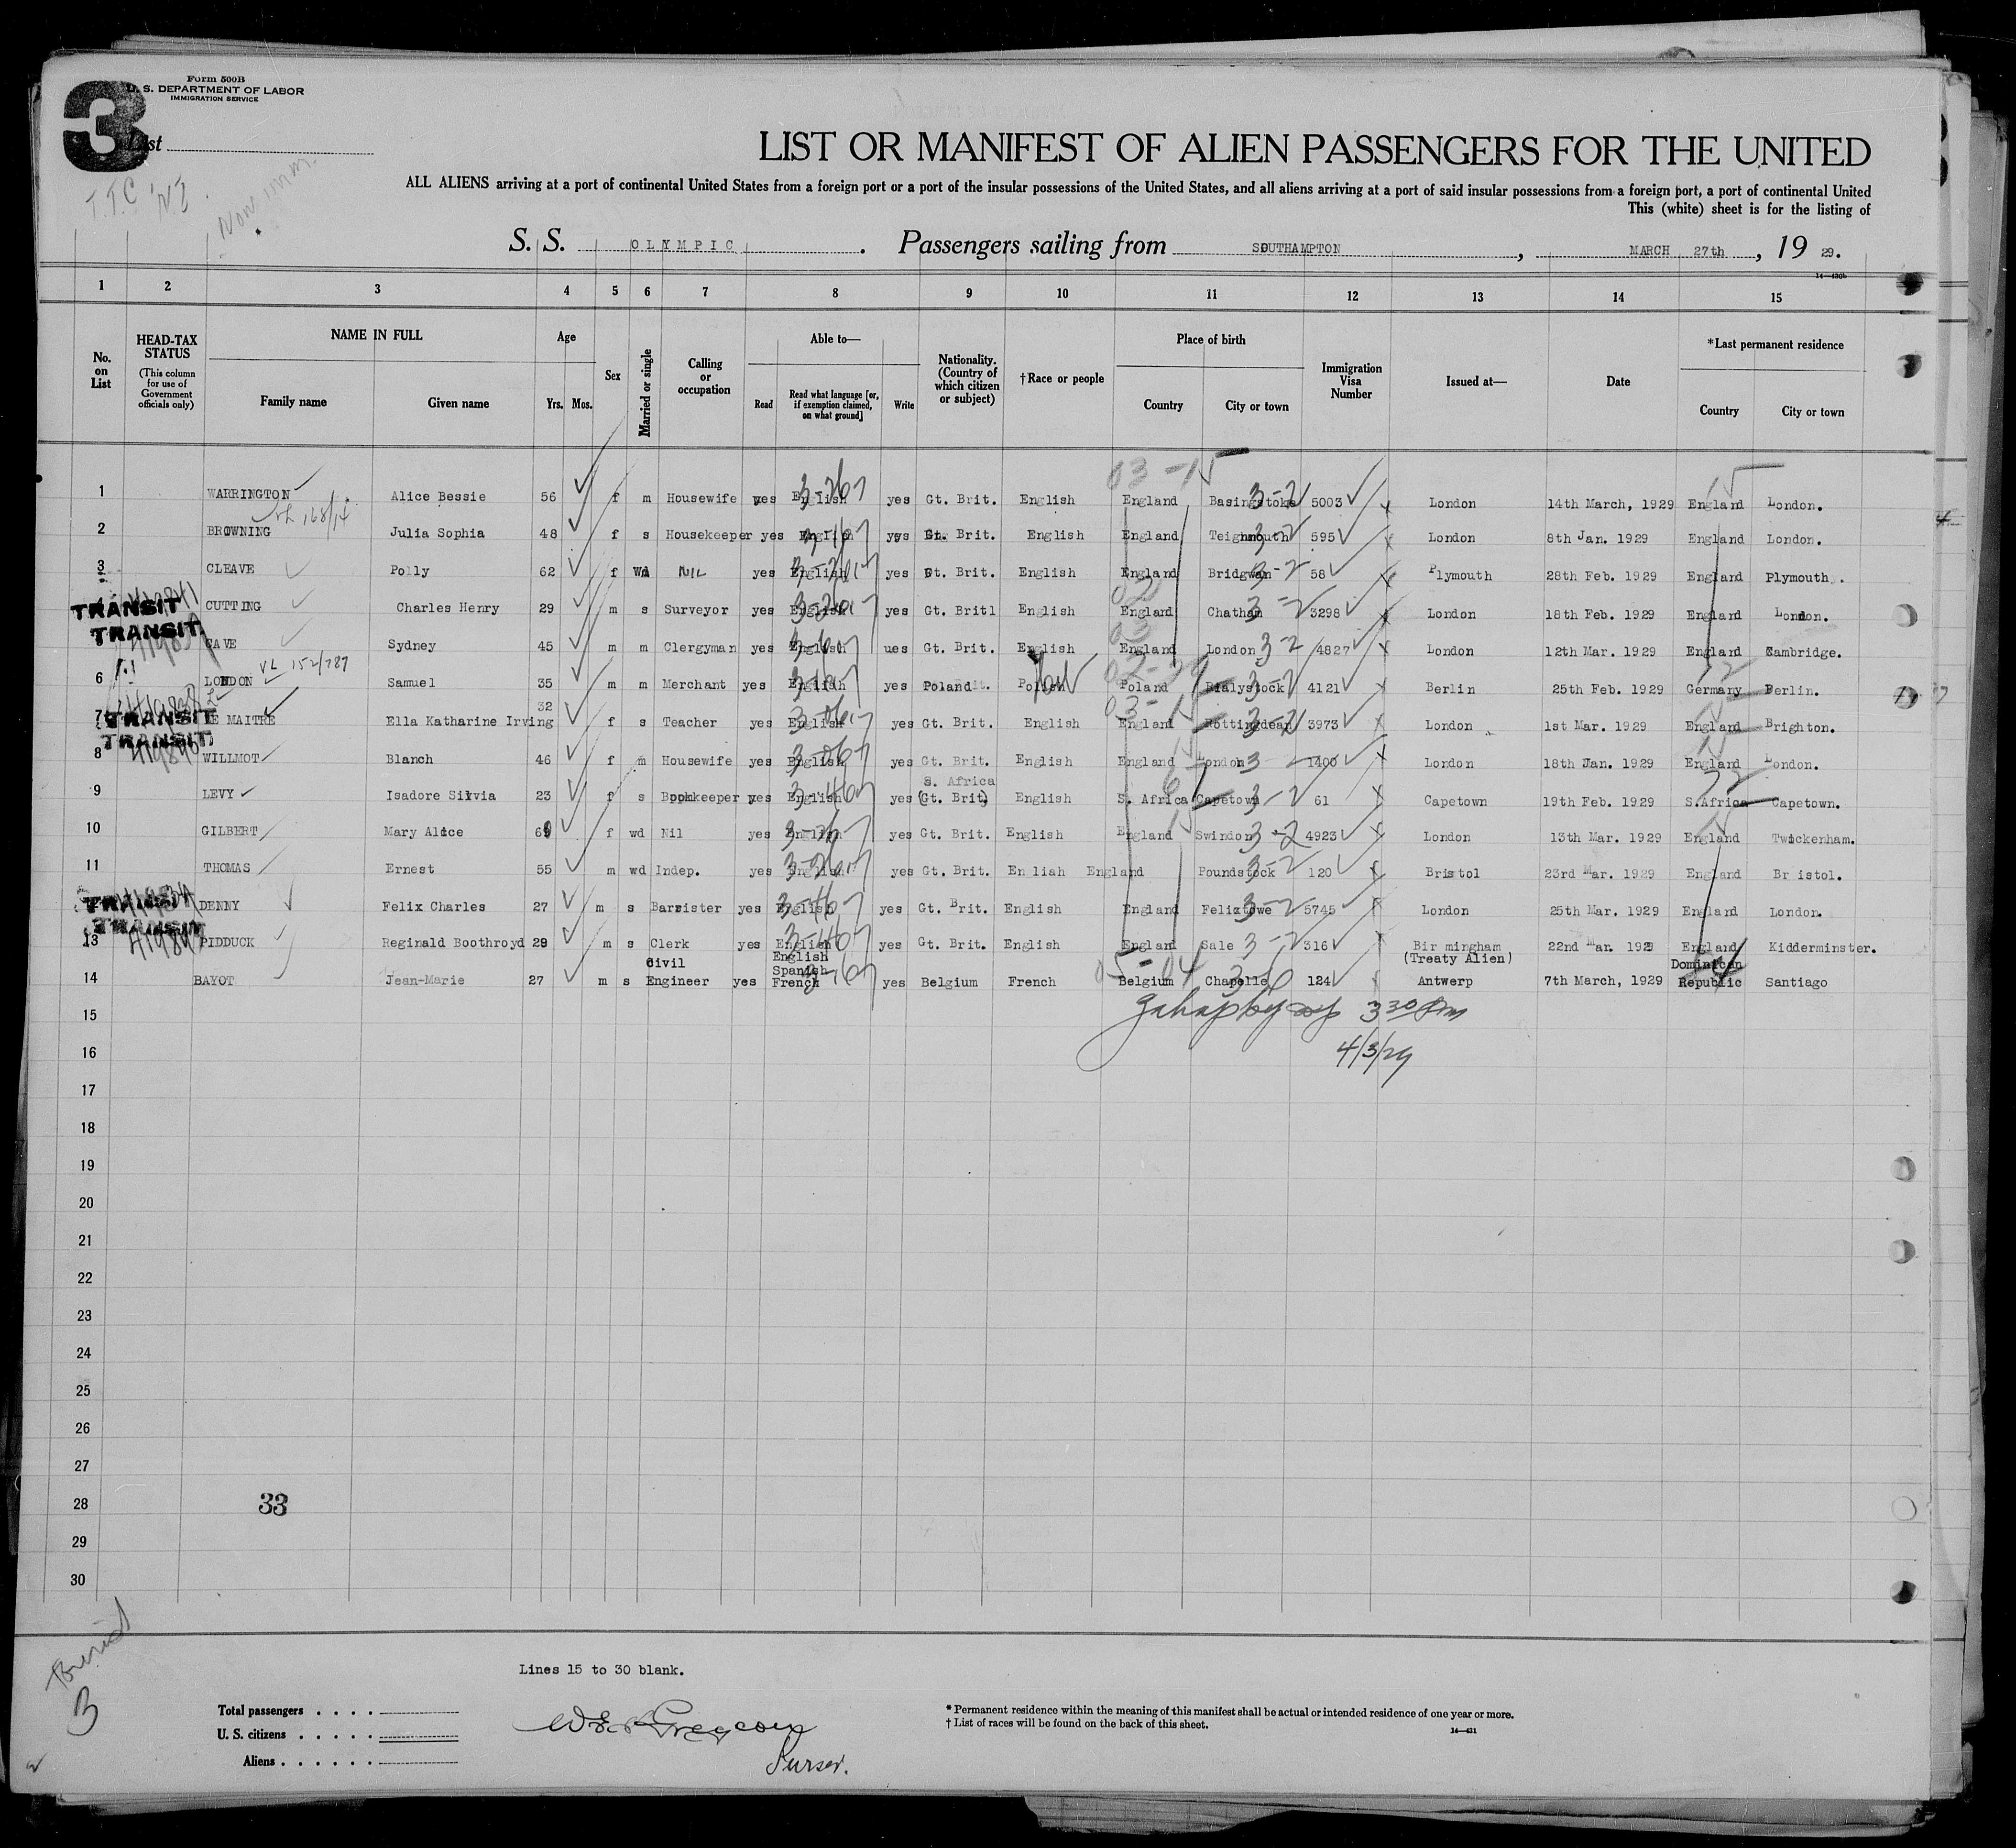 3
Form 500B
U. S. DEPARTMENT OF LABOR
IMMIGRATION SERVICE
List
T.T.C N.I.
Non imm.
LIST OR MANIFEST OF ALIEN PASSENGERS FOR THE UNITED
ALL ALIENS arriving at a port of continental United States from a foreign port or a port of the insular possessions of the United States, and all aliens arriving at a port of said insular possessions from a foreign port, a port of continental United
This (white) sheet is for the listing of
S. S. OLYMPIC . Passengers sailing from SOUTHAMPTON , MARCH 27th , 19 29.
1 2 3 4 5 6 7 8 9 10 11 12 13 14 15
No. on List
HEAD-TAX STATUS
(This column for use of Government officials only)
NAME IN FULL
Family name Given name
Age
Yrs. Mos.
Sex
Married or single
Calling or occupation
Able to—
Read
Read what language [or, if exemption claimed, on what ground]
Write
Nationality. (Country of which citizen or subject)
†Race or people
Place of birth
Country City or town
Immigration Visa Number
Issued at—
Date
*Last permanent residence
Country City or town
1 WARRINGTON Alice Bessie 56 f m Housewife yes English yes Gt. Brit. English England Basingstoke 5003 London 14th March, 1929 England London.
2 BROWNING Julia Sophia 48 f s Housekeeper yes English yes Gt. Brit. English England Teignmouth 595 London 8th Jan. 1929 England London.
3 CLEAVE Polly 62 f Wd NIL yes English yes Gt. Brit. English England 58 Plymouth 28th Feb. 1929 England Plymouth.
TRANSIT CUTTING Charles Henry 29 m s Surveyor yes English yes Gt. Britl English England Chatham 3298 London 18th Feb. 1929 England London.
TRANSIT CAVE Sydney 45 m m Clergyman yes English ues Gt. Brit. English England London 4827 London 12th Mar. 1929 England Cambridge.
6 LONDON Samuel 35 m m Merchant yes English yes Poland Polish Poland Bialystock 4121 Berlin 25th Feb. 1929 Germany Berlin.
7 TRANSIT LE MAITRE Ella Katharine Irving 32 f s Teacher yes English yes Gt. Brit. English England Rottingdean 3973 London 1st Mar. 1929 England Brighton.
TRANSIT
8 WILLMOT Blanch 46 f m Housewife yes English yes Gt. Brit. English England London 1400 London 18th Jan. 1929 England London.
9 LEVY Isadore Silvia 23 f s Bookkeeper yes English yes S. Africa (Gt. Brit) English S. Africa Capetown 61 Capetown 19th Feb. 1929 S.Africa Capetown.
10 GILBERT Mary Alice f wd Nil yes English yes Gt. Brit. English England Swindon 4923 London 13th Mar. 1929 England Twickenham.
11 THOMAS Ernest 55 m wd Indep. yes English yes Gt. Brit. En liah England Poundstock 120 Bristol 23rd Mar. 1929 England Bristol.
TRANSIT DENNY Felix Charles 27 m s Barrister yes English yes Gt. Brit. English England Felixtowe 5745 London 25th Mar. 1929 England London.
TRANSIT
13 PIDDUCK Reginald Boothroyd 29 m s Clerk yes English yes Gt. Brit. English Englan Sale 316 Bir mingham 22nd Mar. 1929 England Kidderminster.
14 BAYOT Jean-Marie 27 m s Civil Engineer yes English Spanish French yes Belgium French Belgium Chapelle 124 (Treaty Alien) Antwerp 7th March, 1929 Dominican Republic Santiago
15 3 30 Pm
16 4/3/29
17
18
19
20
21
22
23
24
25
26
27
28 33
29
30
Tourist
3
Lines 15 to 30 blank.
Total passengers . . . .
U. S. citizens . . . . .
Aliens . . . . . .
Purser.
* Permanent residence within the meaning of this manifest shall be actual or intended residence of one year or more.
† List of races will be found on the back of this sheet.
14—431